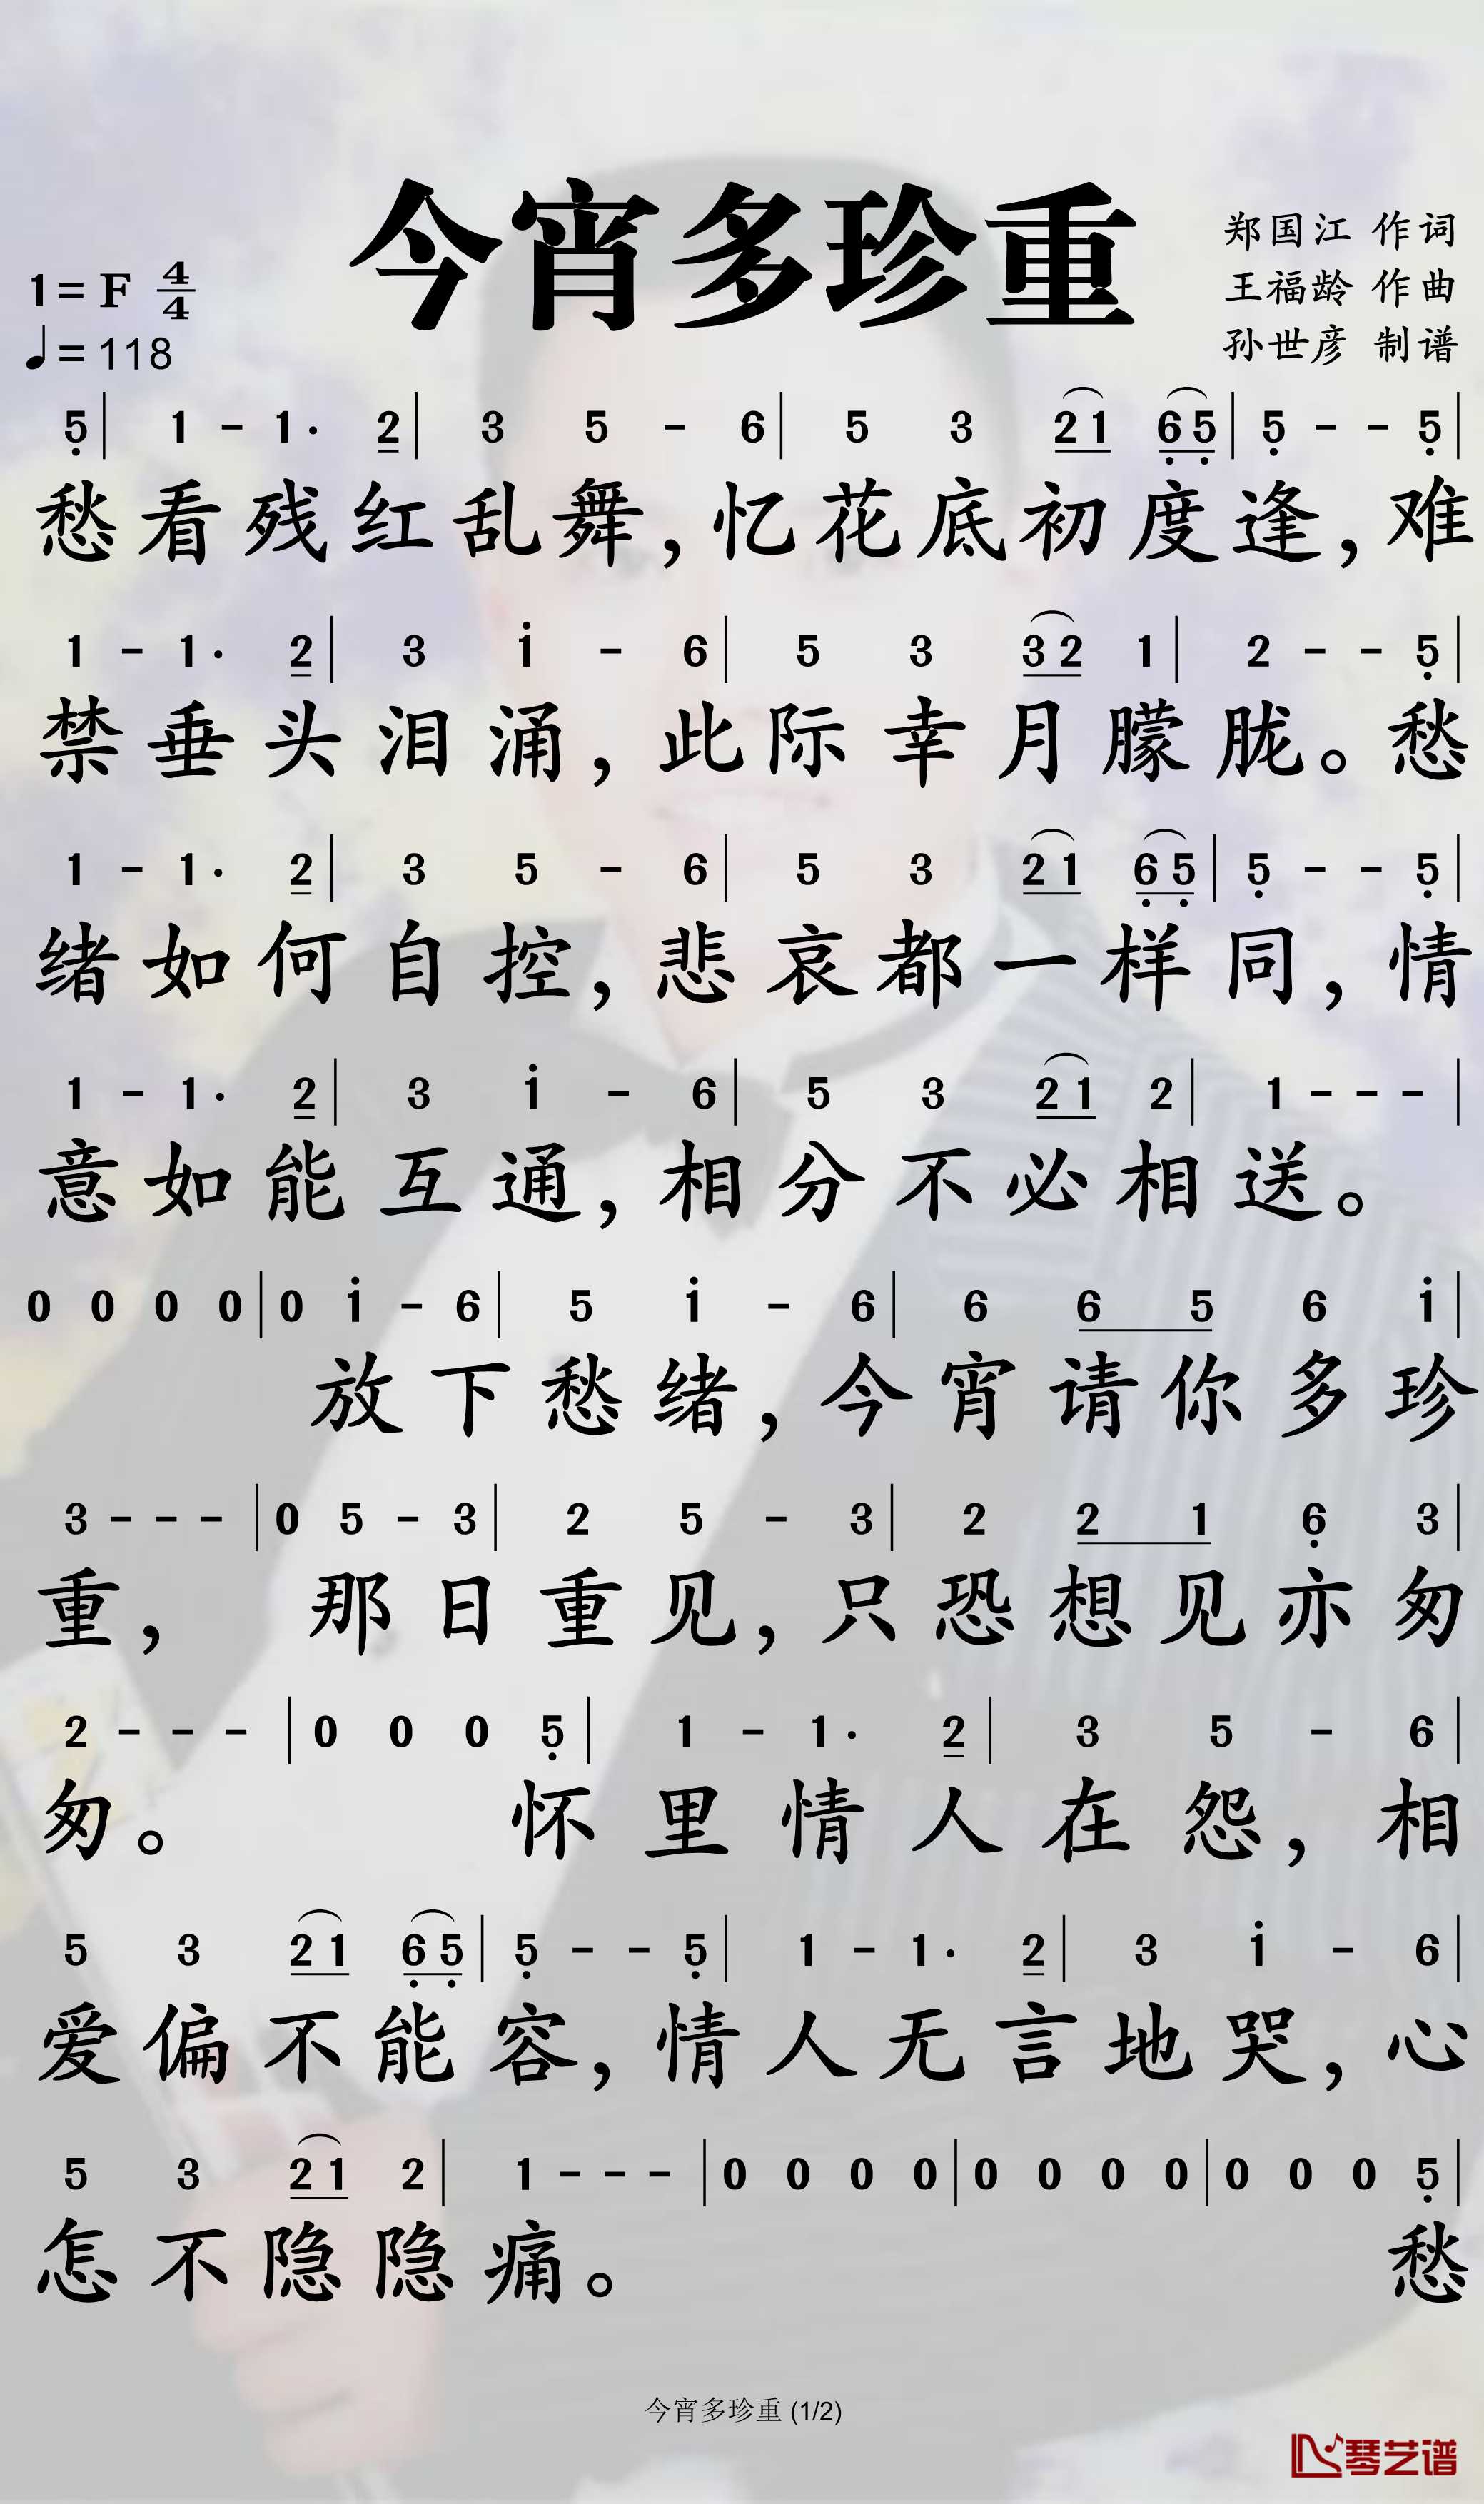 今宵多珍重
郑国江 作词
王福龄 作曲
孙世彦 制谱
1=F 4/4
♩=118
5̣ | 1 - 1· 2 | 3 5 - 6 | 5 3 2 1 6̣ 5̣ | 5̣ - - 5̣ |
愁看残红乱舞，忆花底初度逢，难
1 - 1· 2 | 3 1̇ - 6 | 5 3 3 2 1 | 2 - - 5̣ |
禁垂头泪涌，此际幸月朦胧。愁
1 - 1· 2 | 3 5 - 6 | 5 3 2 1 6̣ 5̣ | 5̣ - - 5̣ |
绪如何自控，悲哀都一样同，情
1 - 1· 2 | 3 1̇ - 6 | 5 3 2 1 2 | 1 - - - |
意如能互通，相分不必相送。
0 0 0 0 | 0 1̇ - 6 | 5 1̇ - 6 | 6 6 5 6 1̇ |
放下愁绪，今宵请你多珍
3 - - - | 0 5 - 3 | 2 5 - 3 | 2 2 1 6̣ 3 |
重，那日重见，只恐想见亦匆
2 - - - | 0 0 0 5̣ | 1 - 1· 2 | 3 5 - 6 |
匆。怀里情人在怨，相
5 3 2 1 6̣ 5̣ | 5̣ - - 5̣ | 1 - 1· 2 | 3 1̇ - 6 |
爱偏不能容，情人无言地哭，心
5 3 2 1 2 | 1 - - - | 0 0 0 0 | 0 0 0 0 | 0 0 0 5̣ |
怎不隐隐痛。愁
今宵多珍重 (1/2)
琴艺谱